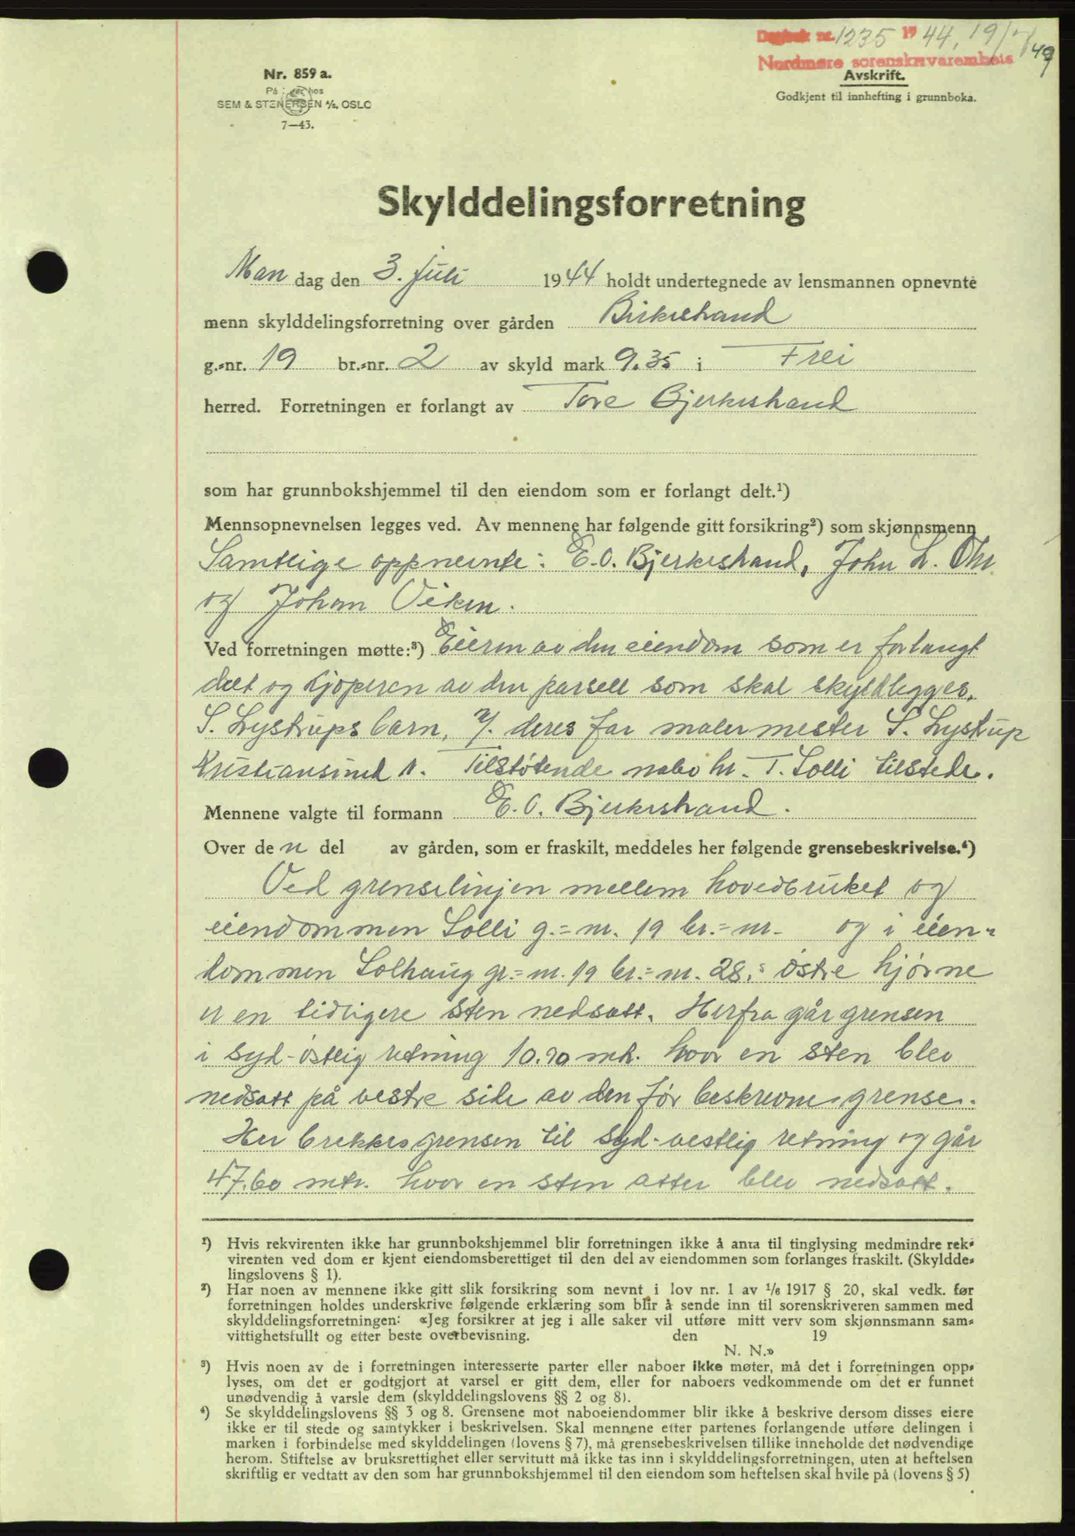 Dagbok nr. 1235 1944, 19/7
49
Nordmøre sorenskriverembete
Nr. 859 a.
Avskrift.
På lager hos
SEM & STENERSEN A/S, OSLO
Godkjent til innhefting i grunnboka.
7—43.
Skylddelingsforretning
Man dag den 3. juli 1944 holdt undertegnede av lensmannen opnevnte
menn skylddelingsforretning over gården Birkestrand
g.-nr. 19 br.-nr. 2 av skyld mark 9.35 i Frei
herred. Forretningen er forlangt av Tore Bjerkestrand
som har grunnbokshjemmel til den eiendom som er forlangt delt.¹)
Mennsopnevnelsen legges ved. Av mennene har følgende gitt forsikring²) som skjønnsmenn
Samtlige oppnevnte: E.O. Bjerkestrand, John L.
og Johan Viken.
Ved forretningen møtte:³) Eieren av den eiendom som er forlangt
delt og kjøperen av den parsell som skal skyldlegges,
S. Lystrups barn, v/ deres far malermester S. Lystrup
Kristiansund N. Tilstøtende nabo hr. T. Solli tilstede.
Mennene valgte til formann E.O. Bjerkestrand.
Over de n del av gården, som er fraskilt, meddeles her følgende grensebeskrivelse.⁴)
Ved grenselinjen mellem hovedbruket og
eiendommen Solli g.=nr. 19 br.=nr. og i eien-
dommen Solhaug gr.=nr. 19 br.=nr. 28,s østre hjørne
er en tidligere sten nedsatt. Herfra går grensen
i syd-østlig retning 10.70 mtr. hvor en sten blev
nedsatt på vestre side av den før beskrevne grense.
Her brekkes grensen til syd-vestlig retning og går
47.60 mtr. hvor en sten atter blev nedsatt.
¹) Hvis rekvirenten ikke har grunnbokshjemmel blir forretningen ikke å anta til tinglysing medmindre rek-
virenten ved dom er kjent eiendomsberettiget til den del av eiendommen som forlanges fraskilt. (Skyldde-
lingslovens § 1).
²) Har noen av mennene ikke gitt slik forsikring som nevnt i lov nr. 1 av 1/6 1917 § 20, skal vedk. før
forretningen holdes underskrive følgende erklæring som blir å sende inn til sorenskriveren sammen med
skylddelingsforretningen: «Jeg forsikrer at jeg i alle saker vil utføre mitt verv som skjønnsmann sam-
vittighetsfullt og etter beste overbevisning. den 19
N. N.»
³) Hvis noen av de i forretningen interesserte parter eller naboer ikke møter, må det i forretningen opp-
lyses, om det er godtgjort at varsel er gitt dem, eller for naboers vedkommende om det er funnet
unødvendig å varsle dem (skylddelingslovens §§ 2 og 8).
⁴) Se skylddelingslovens §§ 3 og 8. Grensene mot naboeiendommer blir ikke å beskrive dersom disses eiere
ikke er til stede og samtykker i beskrivelsen. Skal mennene etter partenes forlangende utføre delingen i
marken i forbindelse med skylddelingen (lovens § 7), må grensebeskrivelsen tillike inneholde det nødvendige
herom. Stiftelse av bruksrettighet eller servitutt må ikke tas inn i skylddelingsforretningen, uten at heftelsen
skriftlig er vedtatt av den som har grunnbokshjemmel til den eiendom som heftelsen skal hvile på (lovens § 5)